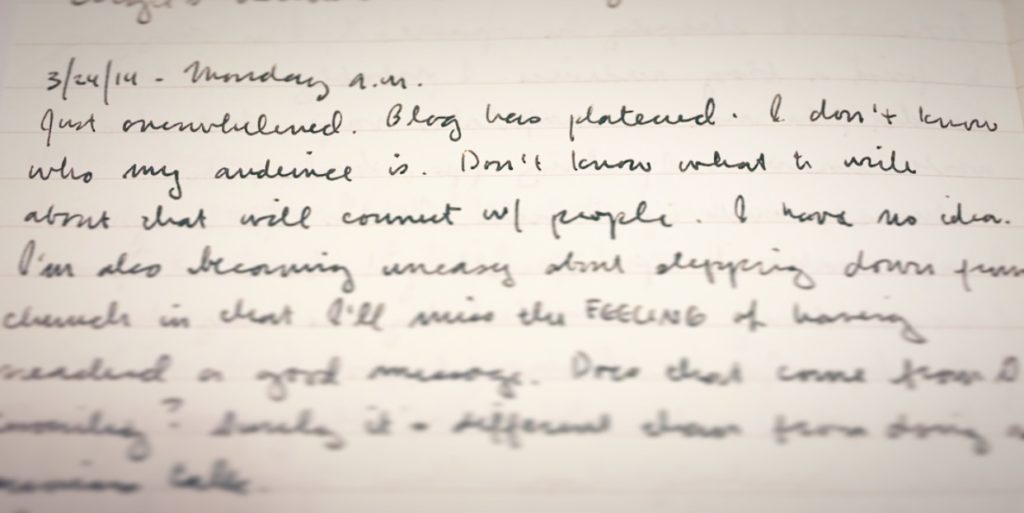 3/24/14 - Monday a.m.
Just overwhelmed. Blog has plateued. I don't know
who my audience is. Don't know what to write
about that will connect w/ people. I have no idea.
I'm also becoming uneasy about stepping down from
church in that I'll miss the FEELING of having
a good message. Does that come from
? Surely it different than from doing a
talk.